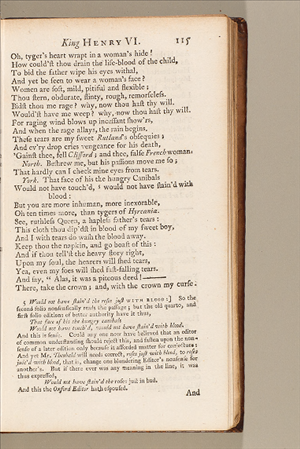 King HENRY VI. 115
Oh, tyger's heart wrapt in a woman's hide!
How could'st thou drain the life-blood of the child,
To bid the father wipe his eyes withal,
And yet be seen to wear a woman's face?
Women are soft, mild, pitiful and flexible;
Thou stern, obdurate, flinty, rough, remorseless.
Bidst thou me rage? why, now thou hast thy will.
Would'st have me weep? why, now thou hast thy will.
For raging wind blows up incessant show'rs,
And when the rage allays, the rain begins.
These tears are my sweet Rutland's obsequies;
And ev'ry drop cries vengeance for his death,
'Gainst thee, fell Clifford; and thee, false French-woman.
North. Beshrew me, but his passions move me so;
That hardly can I check mine eyes from tears.
York. That face of his the hungry Canibals
Would not have touch'd, 5 would not have stain'd with
blood:
But you are more inhuman, more inexorable,
Oh ten times more, than tygers of Hyrcania.
See, ruthless Queen, a hapless father's tears:
This cloth thou dip'dst in blood of my sweet boy,
And I with tears do wash the blood away.
Keep thou the napkin, and go boast of this:
And if thou tell'st the heavy story right,
Upon my soul, the hearers will shed tears,
Yea, even my foes will shed fast-falling tears.
And say, " Alas, it was a piteous deed!
There, take the crown; and, with the crown my curse.
5 Would not have stain'd the rose just WITH BLOOD:] So the
second folio nonsensically reads the passage; but the old quarto, and
first folio editions of better authority have it thus,
That face of his the hungry canibals
Would not have touch'd, would not have stain'd with blood.
And this is sense. Could any one now have believed that an editor
of common understanding should reject this, and fasten upon the non-
sense of a later edition only because it afforded matter for conjecture:
And yet Mr. Theobald will needs correct, roses just with blood, to roses
juic'd with blood, that is, change one blundering Editor's nonsense for
another's. But if there ever was any meaning in the line, it was
thus expressed,
Would not have stain'd the roses just in bud.
And this the Oxford Editor hath espoused.
And